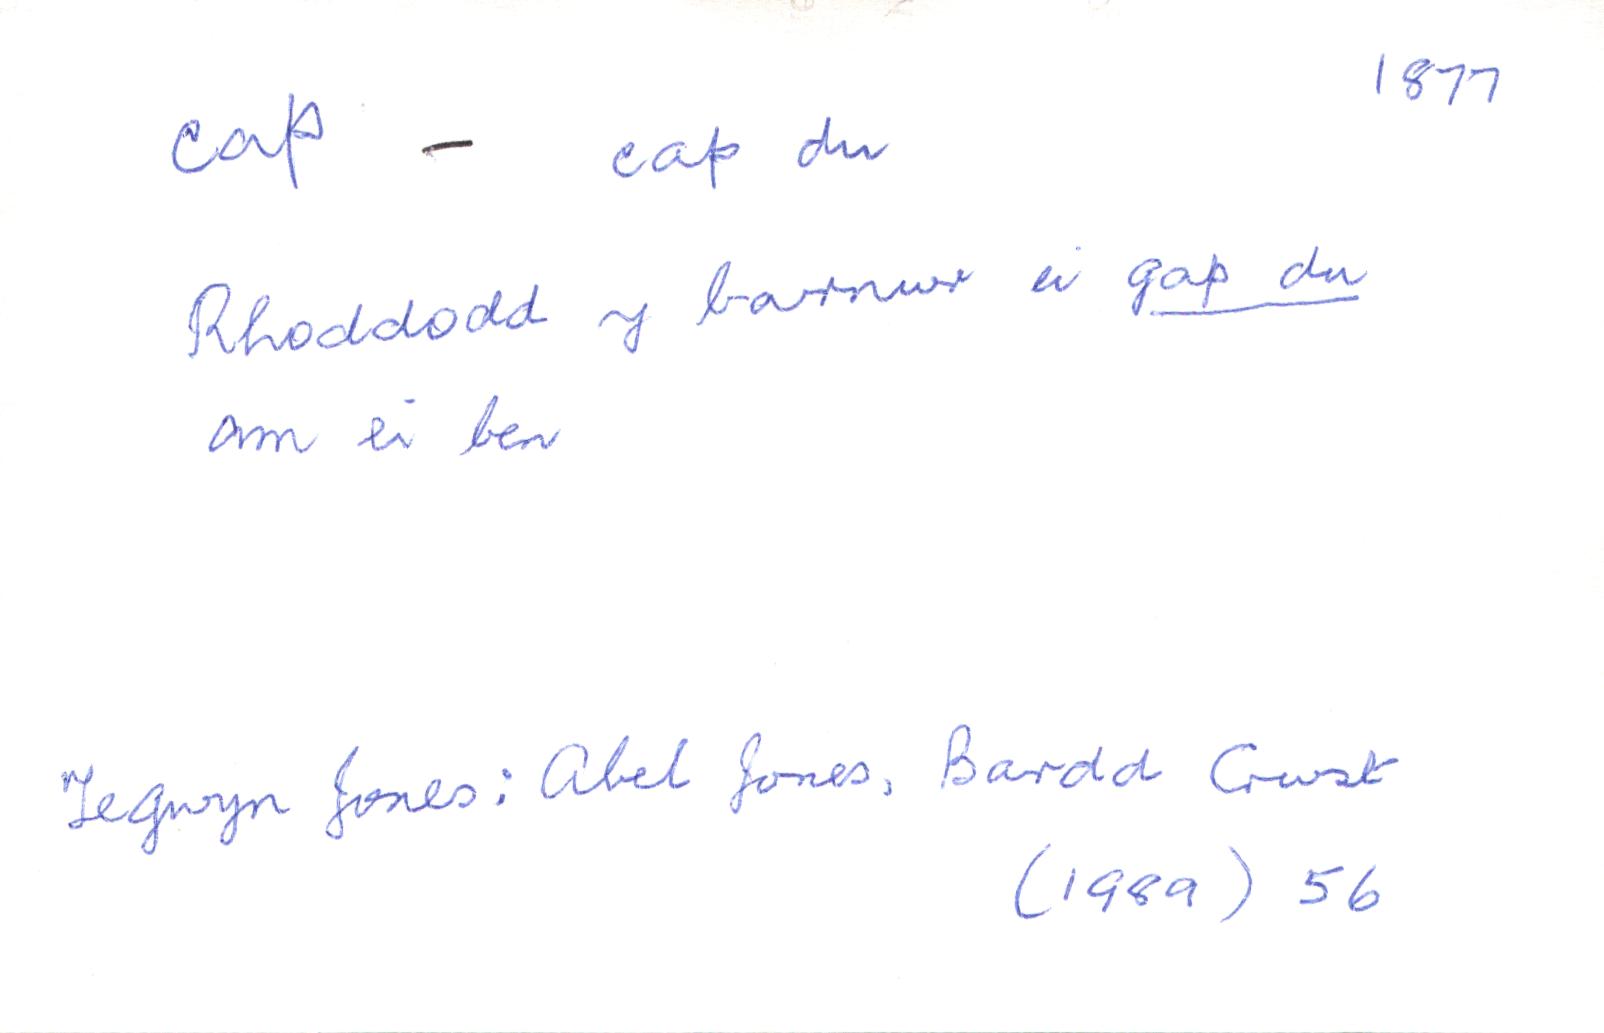 1877
cap - cap du
Rhoddodd y barnwr ei gap du
am ei ben
Tegwyn Jones: Abel Jones, Bardd Crwst
(1989) 56